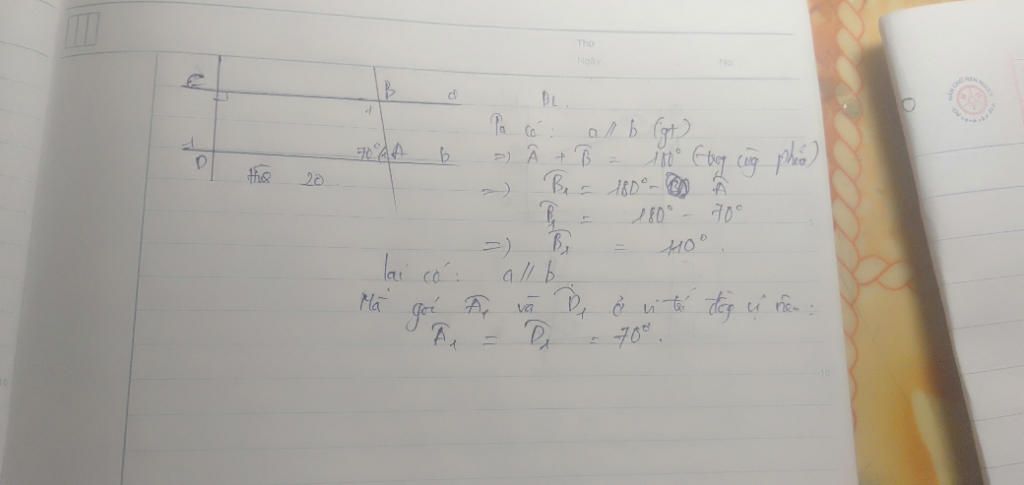 Thứ
Ngày No.
C B a
1
D 1 70° A b
Hình 20
BL.
Ta có: a // b (gt)
=> Â + B̂ = 180° (trong cùng phía)
=> B̂₁ = 180° - Â
B̂₁ = 180° - 70°
=> B̂₁ = 110°.
lại có: a // b
Mà góc Â₁ và D̂₁ ở vị trí đồng vị nên:
Â₁ = D̂₁ = 70°.
10